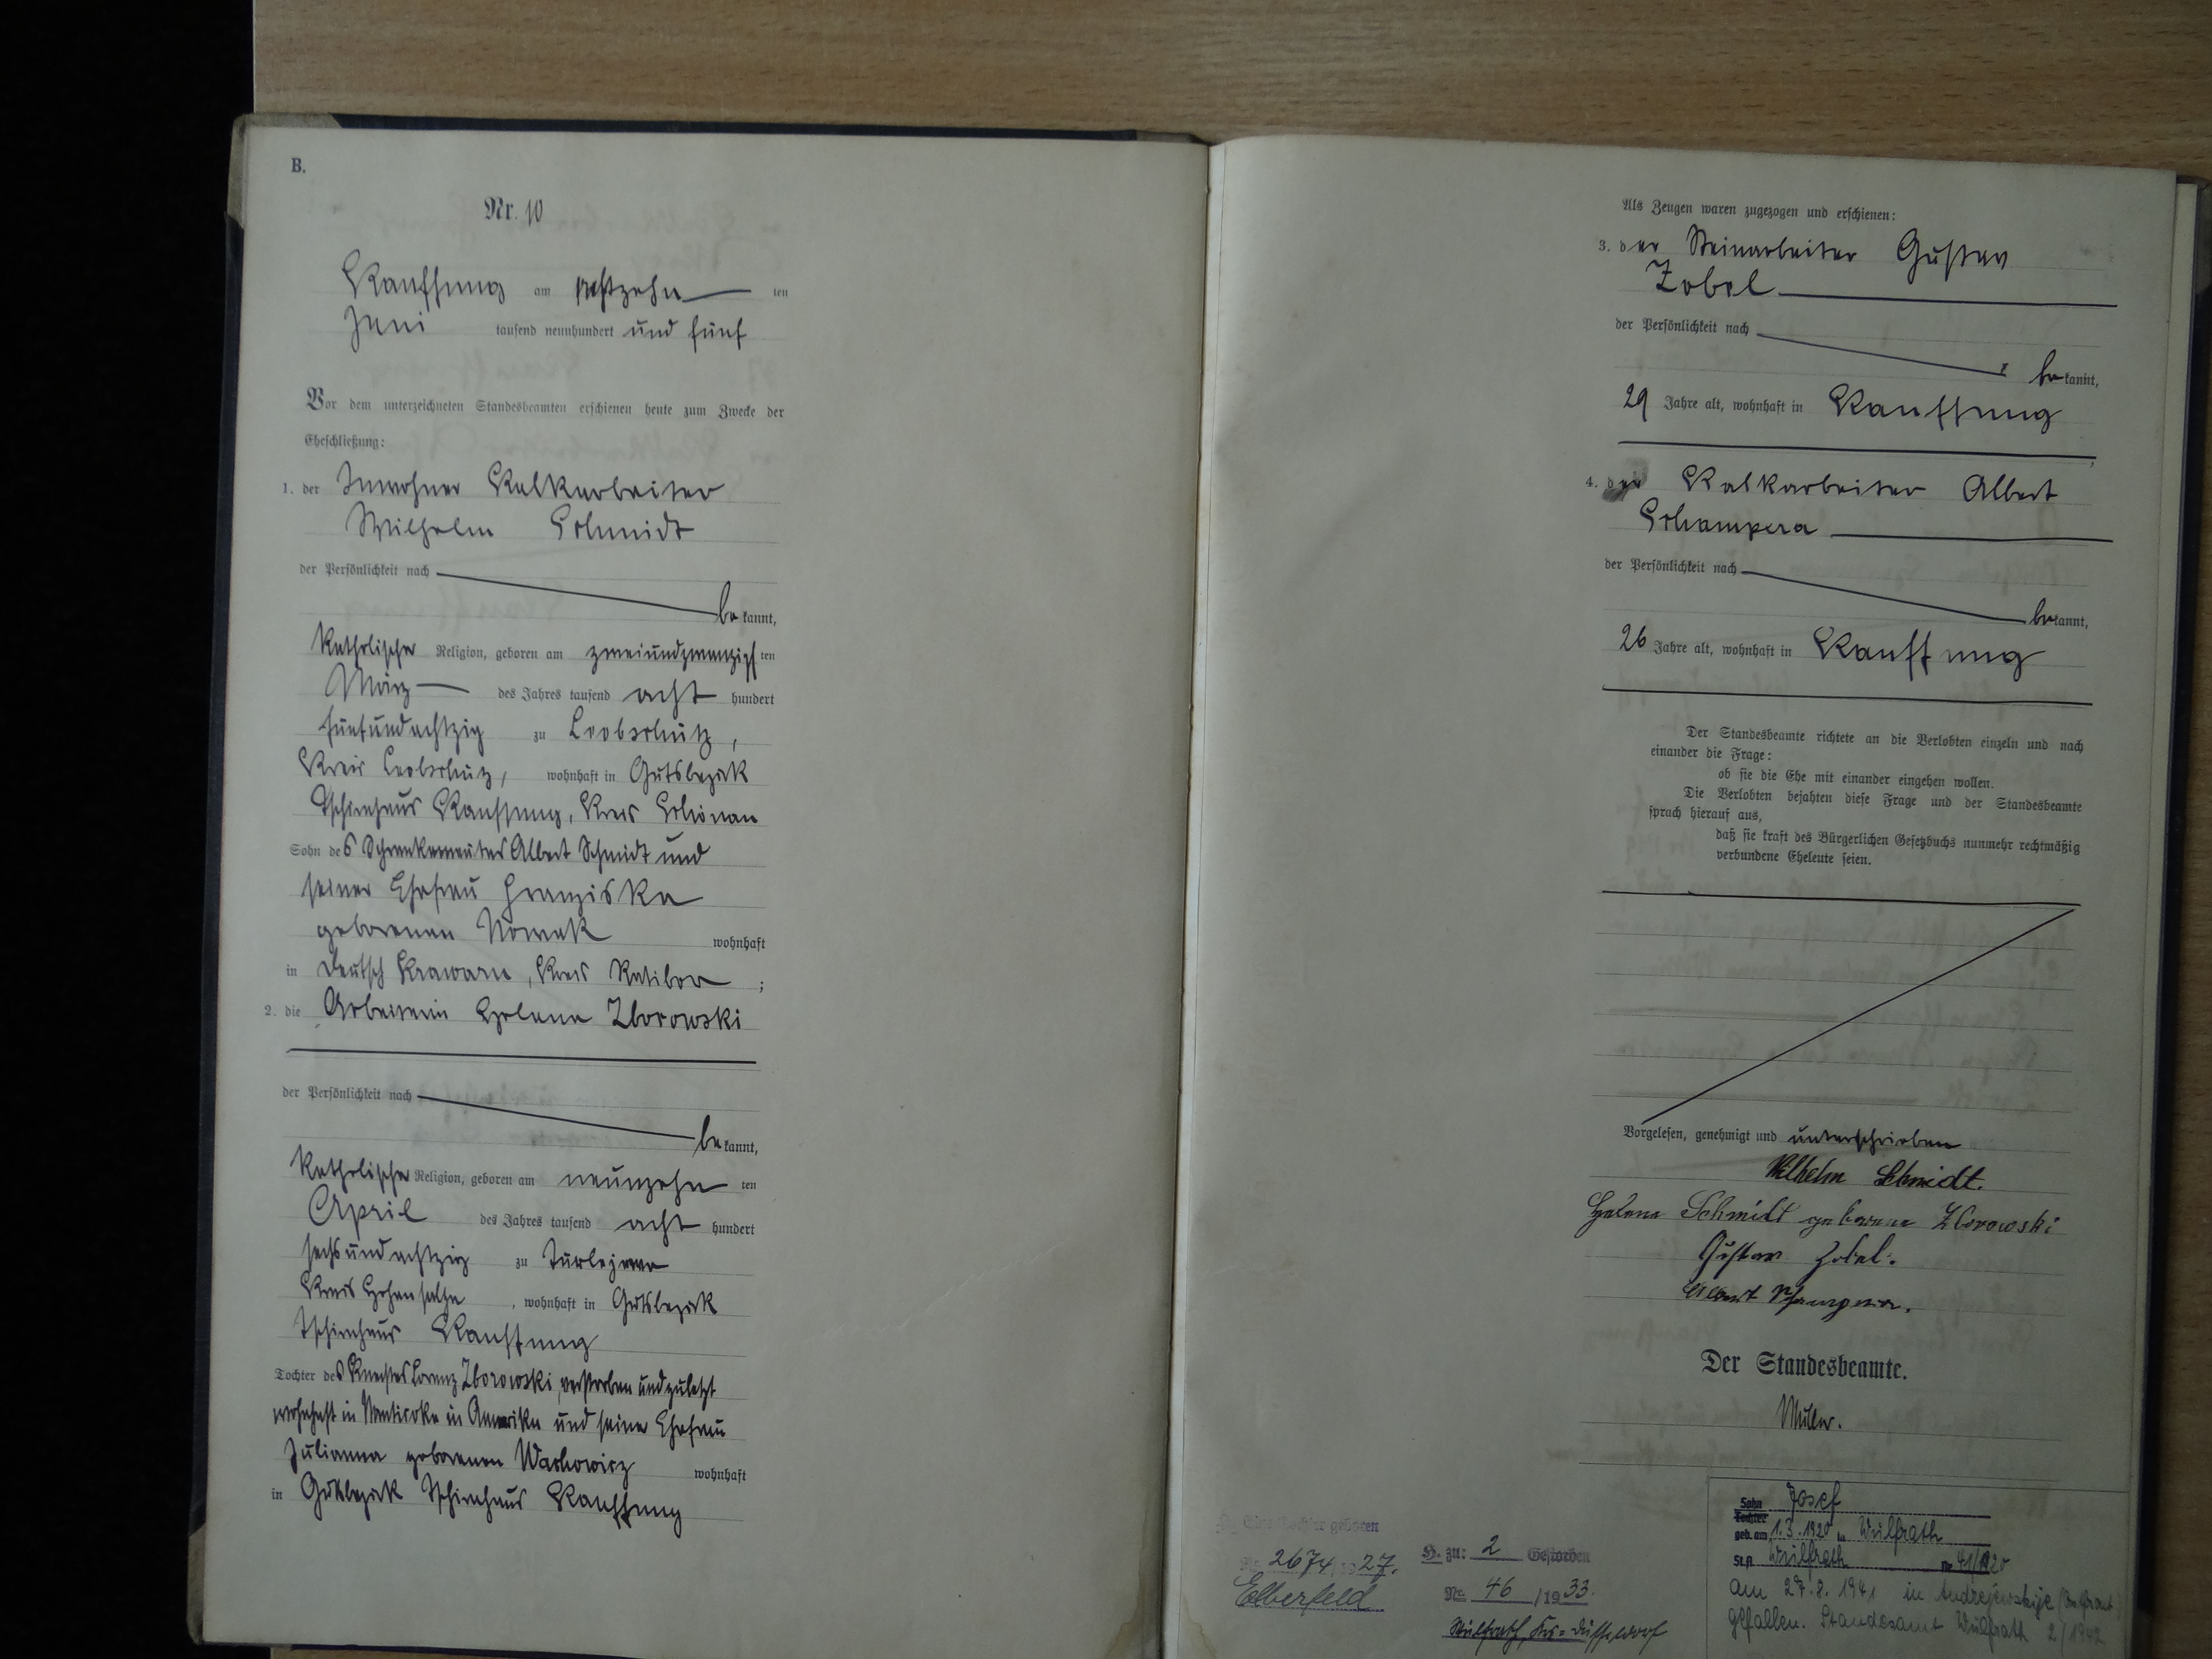 B.
Nr. 10
Kauffung am achtzehn ten
Juni tausend neunhundert und fünf
Vor dem unterzeichneten Standesbeamten erschienen heute zum Zwecke der
Eheschließung:
1. der Inwohner Kalkarbeiter
Wilhelm Schmidt
der Persönlichkeit nach
be kannt,
katholischer Religion, geboren am zweiundzwanzigsten
März des Jahres tausend acht hundert
fünfundachtzig zu Leobschütz,
Kreis Leobschütz, wohnhaft in Gutsbezirk
Tschirnhaus Kauffung, Kreis Schönau
Sohn des Albert Schmidt und
seiner Ehefrau Franziska
geborenen Nowak wohnhaft
in Deutsch Krawarn, Kreis Ratibor ;
2. die Arbeiterin Helena Zborowski
der Persönlichkeit nach
be kannt,
katholischer Religion, geboren am neunzehn ten
April des Jahres tausend acht hundert
sechsundachtzig zu Turlejewo
Kreis Hohensalza , wohnhaft in Gutsbezirk
Tschirnhaus Kauffung
Tochter des Knechtes Lorenz Zborowski, verstorben und zuletzt
wohnhaft in Nanticoke in Amerika und seiner Ehefrau
Julianna geborenen Wachowicz wohnhaft
in Gutsbezirk Tschirnhaus Kauffung
Als Zeugen waren zugezogen und erschienen:
3. der Steinarbeiter Gustav
Zobel
der Persönlichkeit nach
be kannt,
29 Jahre alt, wohnhaft in Kauffung
4. der Kalkarbeiter Albert
Schampera
der Persönlichkeit nach
be kannt,
26 Jahre alt, wohnhaft in Kauffung
Der Standesbeamte richtete an die Verlobten einzeln und nach
einander die Frage:
ob sie die Ehe mit einander eingehen wollen.
Die Verlobten bejahten diese Frage und der Standesbeamte
sprach hierauf aus,
daß sie kraft des Bürgerlichen Gesetzbuchs nunmehr rechtmäßig
verbundene Eheleute seien.
Vorgelesen, genehmigt und unterschrieben
Wilhelm Schmidt.
Helena Schmidt geborene Zborowski
Gustav Zobel.
Albert Schampera.
Der Standesbeamte.
Müller.
Eine Tochter geboren
Nr. 2674/1927.
Elberfeld
H. zu: 2 Gestorben
Nr. 46 /1933.
Wülfrath, Krs. Düsseldorf
Sohn Josef
Tochter
geb. am 1.3.1920 in Wülfrath
St.A. Wülfrath Nr 41/1920
am 27.8.1941 in Andrejewskije (Ostfront)
gefallen. Standesamt Wülfrath 2/1942